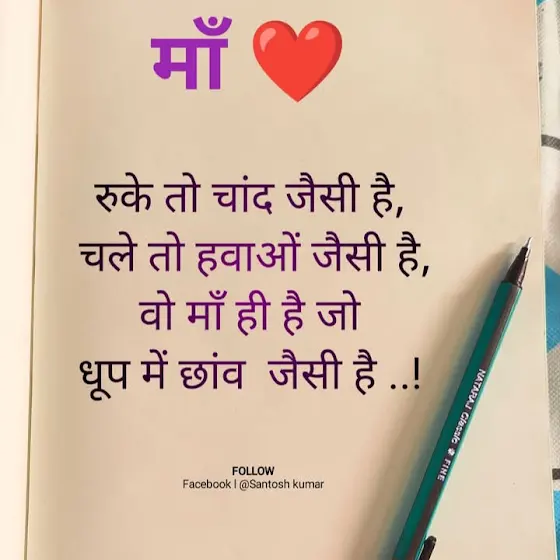 माँ ❤️
रुके तो चांद जैसी है,
चले तो हवाओं जैसी है,
वो माँ ही है जो
धूप में छांव जैसी है ..!
FOLLOW
Facebook | @Santosh kumar
NATARAJ Classic FINE